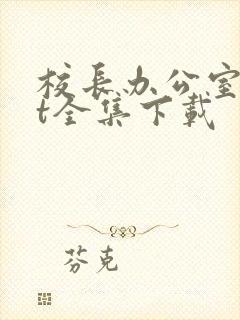 校长办公室
t全集下载
芬克